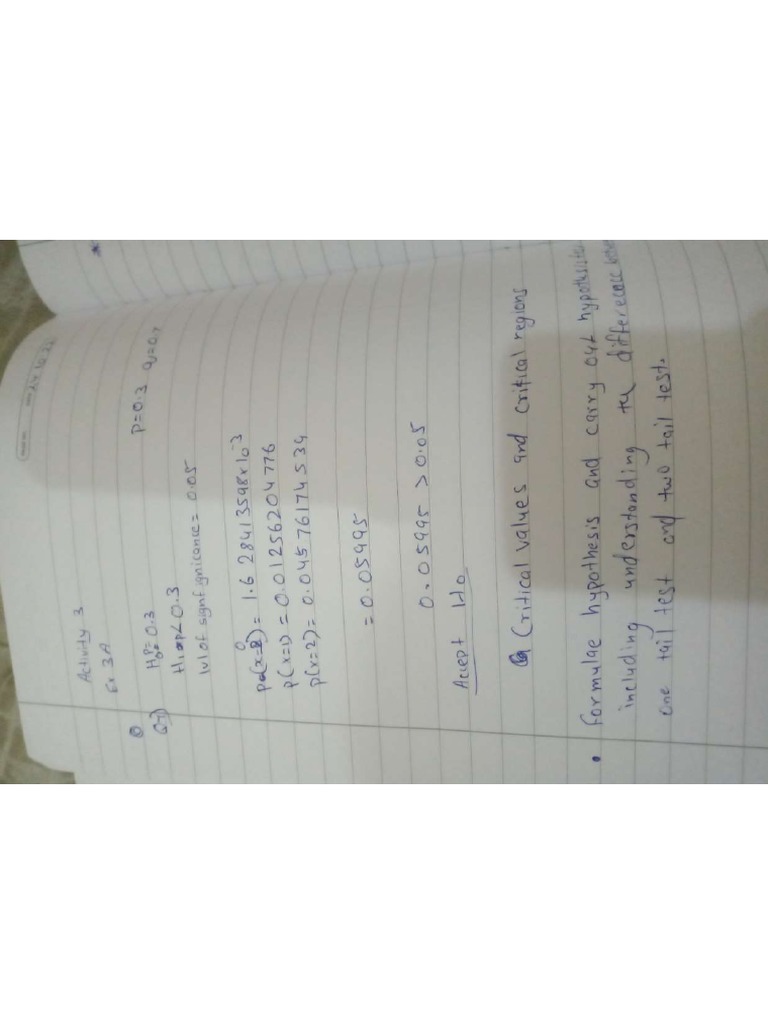 Activity 3
Ex 3A
Q7)
H₀ P=0.3 P=0.3 q=0.7
H1 p<0.3
lvl of signfignicance = 0.05
P(x=0) = 1.628413598x10⁻³
P(x=1) = 0.01256204776
P(x=2) = 0.04576174534
= 0.05995
0.05995 > 0.05
Accept H₀
Critical values and critical regions
• formulae hypothesis and carry out
including understanding the difference
one tail test and two tail test.